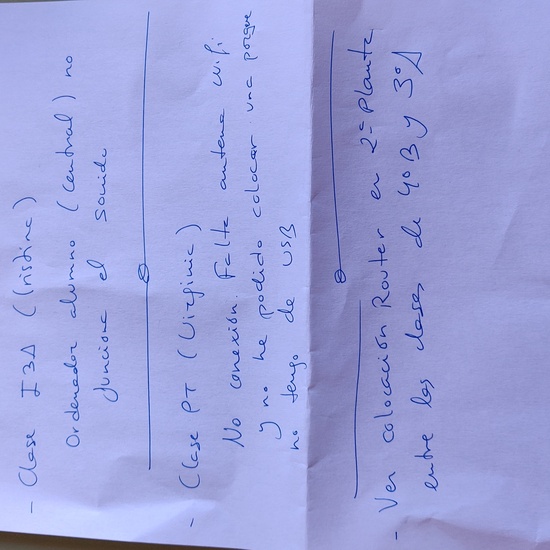 - Clase I3A (Cristina)
Ordenador alumno (central) no
funciona el sonido
- Clase PT (Virginia)
No conexión. Falta antena wifi
y no he podido colocar una porque
no tengo de USB
- Ver colocación Router en 2ª Planta
entre las clases de 4ºB y 3ºA